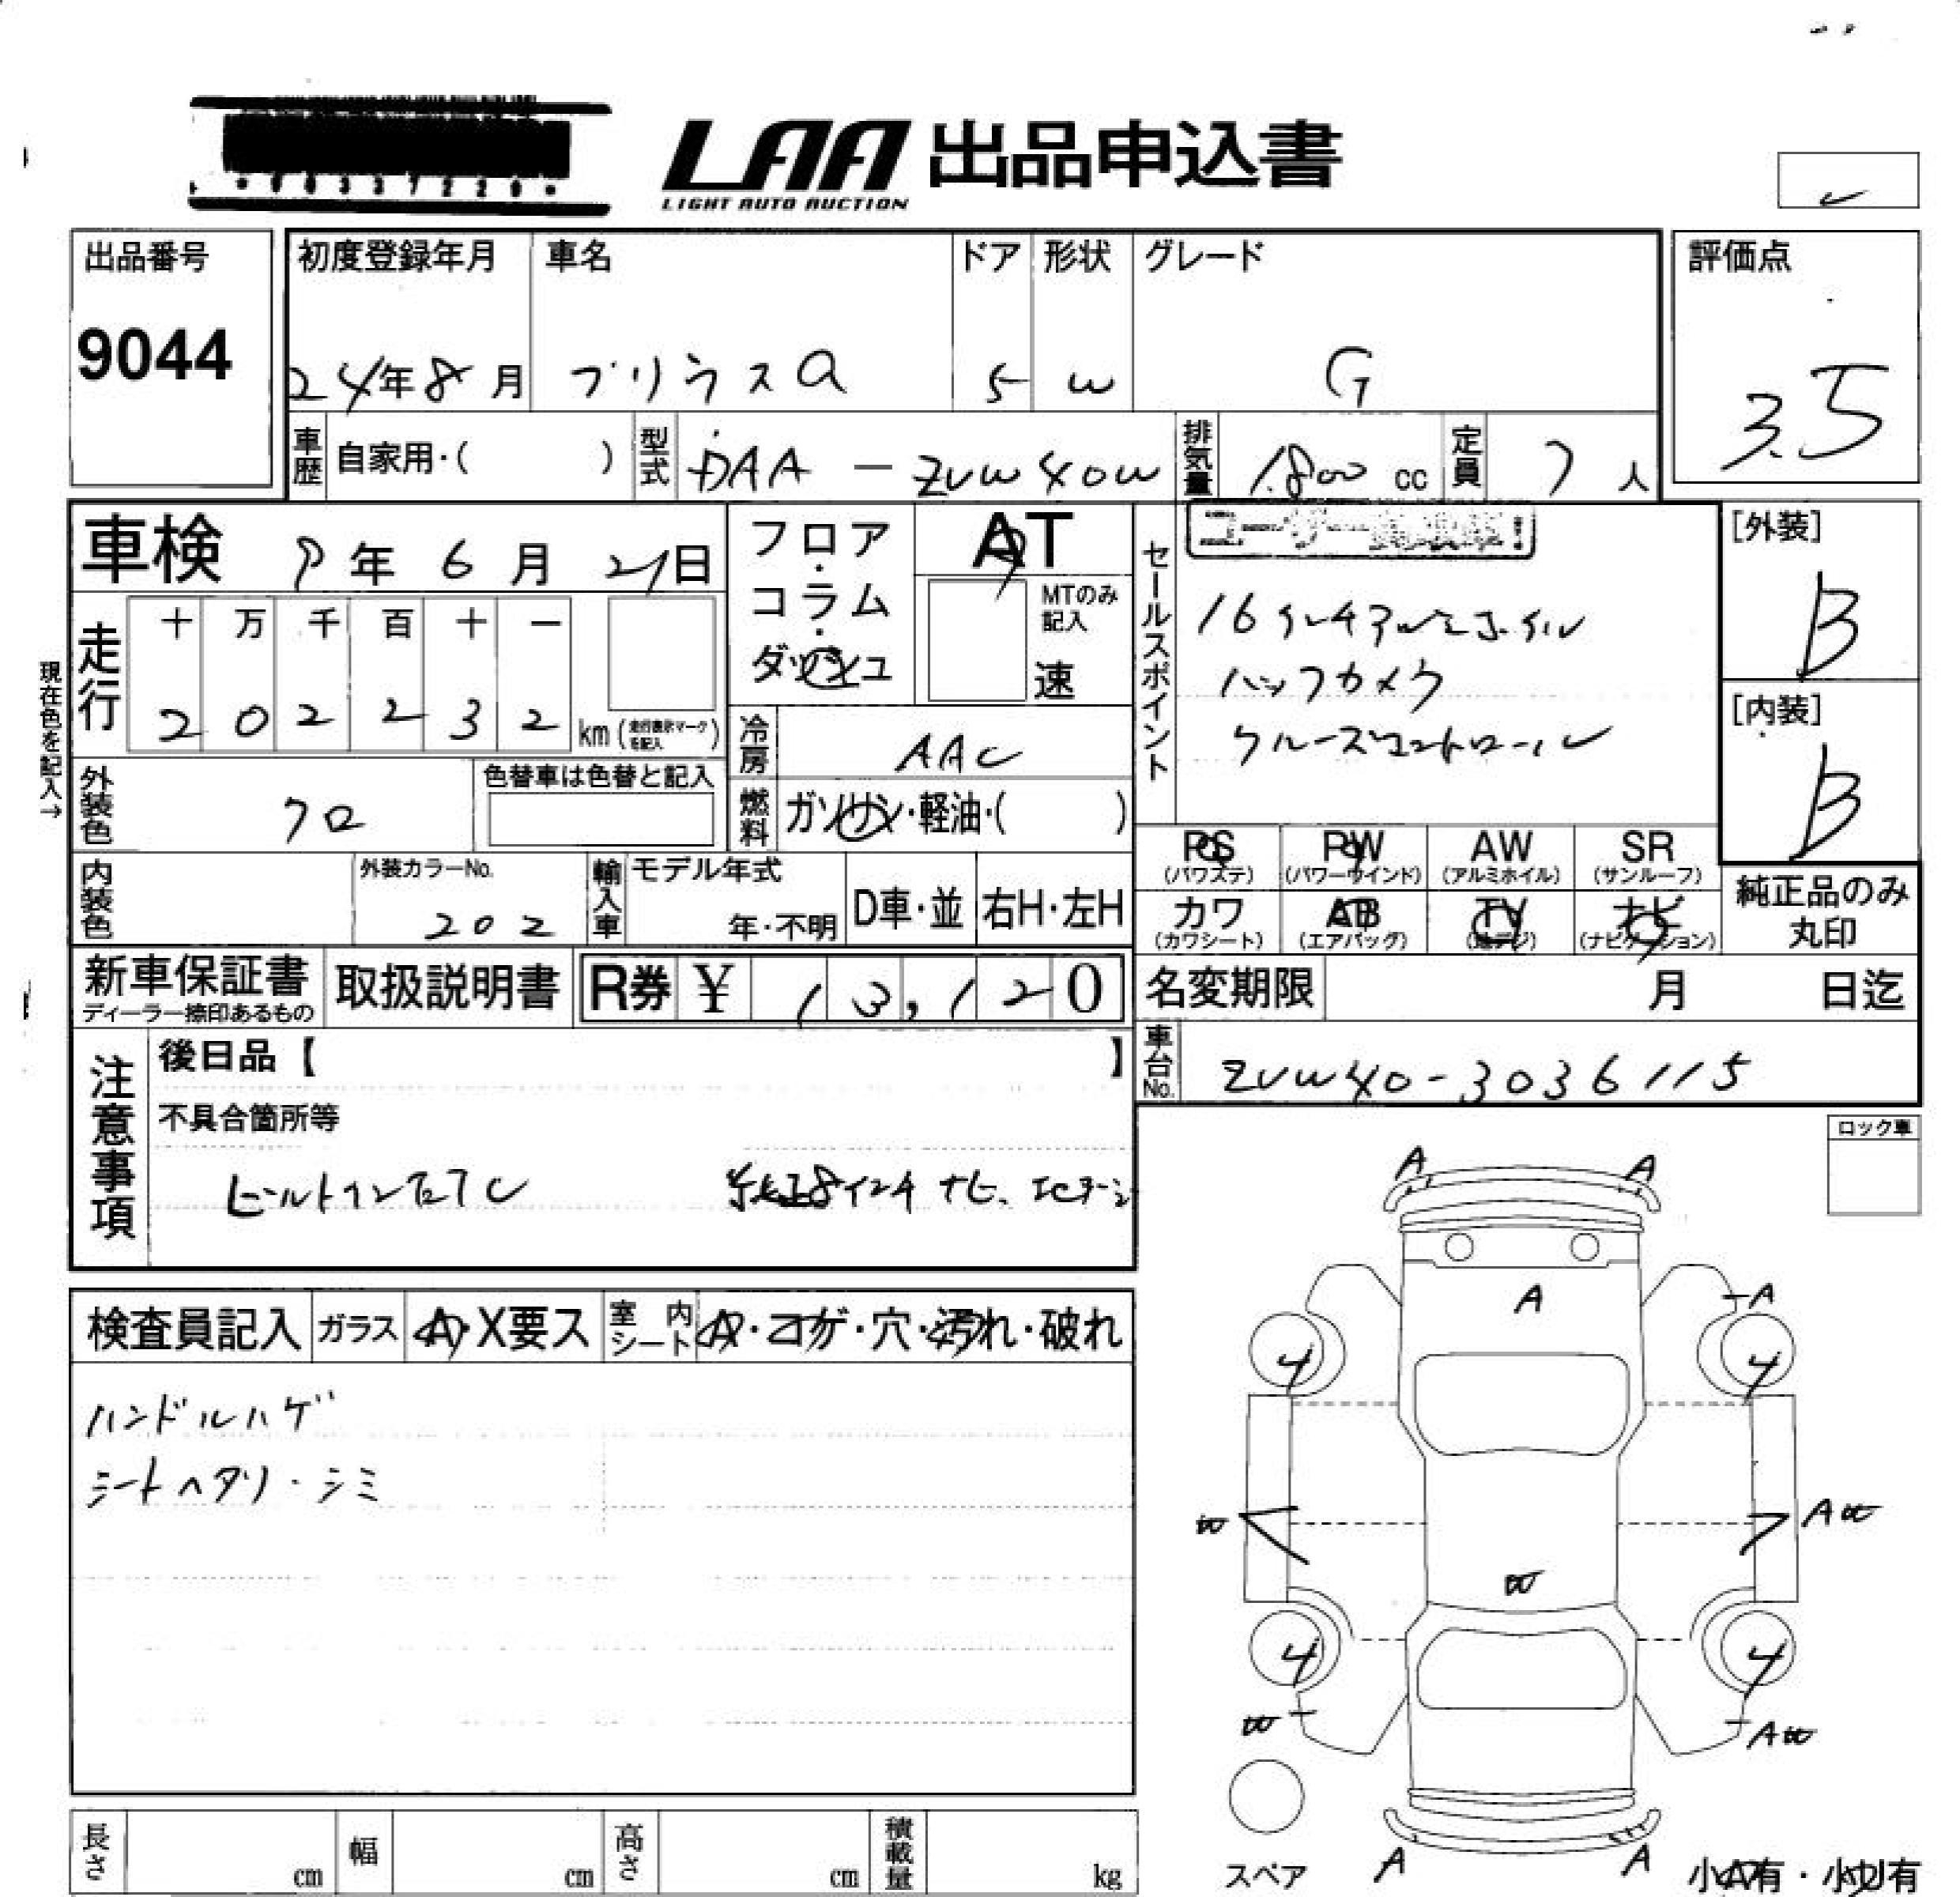 LAA 出品申込書
LIGHT AUTO AUCTION
出品番号
9044
初度登録年月
24年8月
車名
プリウスα
ドア
5
形状
W
グレード
G
評価点
3.5
車歴
自家用・(　　)
型式
DAA-ZVW40W
排気量
1800 cc
定員
7人
車検
9年6月21日
フロア・コラム・ダッシュ
AT
MTのみ記入
速
セールスポイント
16インチアルミホイル
バックカメラ
クルーズコントロール
[外装]
B
[内装]
B
現在色を記入→
走行
十 万 千 百 十 一
2 0 2 2 3 2 km(走行表示マークを記入)
冷房
AAC
外装色
クロ
色替車は色替と記入
燃料
ガソリン・軽油・(　　)
PS
(パワステ)
PW
(パワーウインド)
AW
(アルミホイル)
SR
(サンルーフ)
カワ
(カワシート)
AB
(エアバッグ)
TV
(地デジ)
ナビ
(ナビゲーション)
純正品のみ
丸印
内装色
外装カラーNo.
202
輸入車
モデル年式
年・不明
D車・並
右H・左H
新車保証書
ディーラー捺印あるもの
取扱説明書
R券 ¥ 13,120
名変期限
月　日迄
車台No.
ZVW40-3036115
注意事項
後日品【　　】
不具合箇所等
ビルトインETC
純正8インチ ナビ、
ロック車
検査員記入
ガラス
A・X要ス
室内シート
A・コゲ・穴・汚れ・破れ
ハンドルハゲ
シートヘタリ・シミ
A A
A
A
4 4
W AW
W
4 4
W AW
スペア
A A
小A有・小U有
長さ cm
幅 cm
高さ cm
積載量 kg